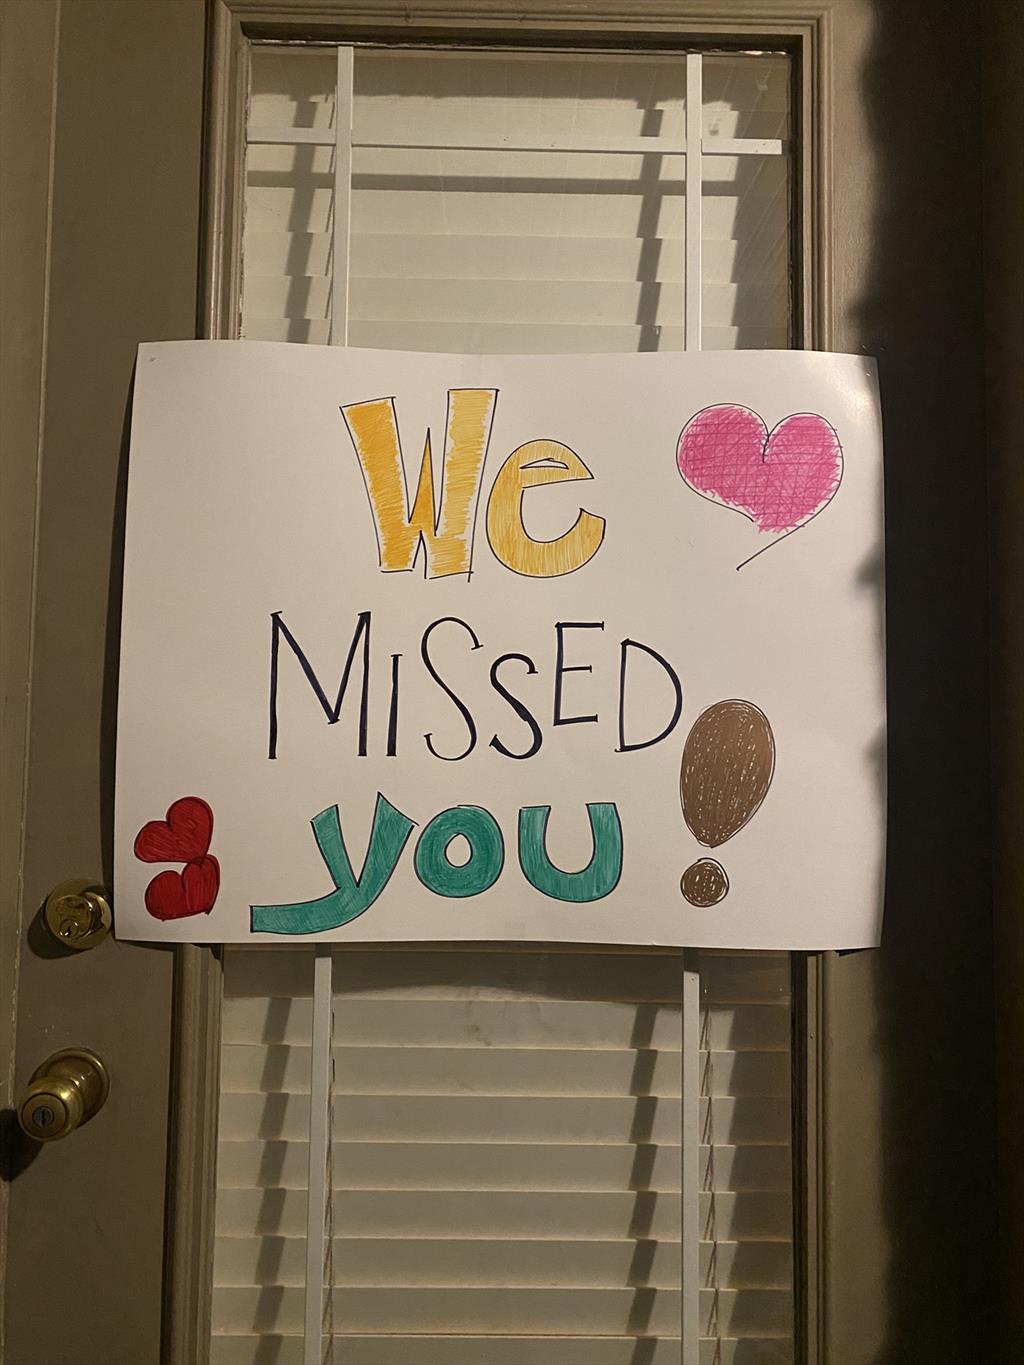 We
MISSED
you!